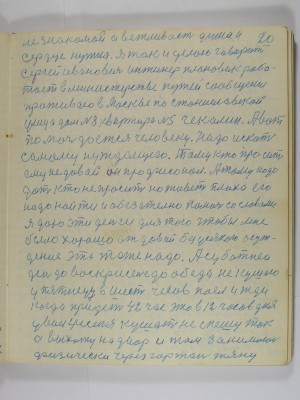 20
незнакомой а ветливаст душа и
сердце нужна. Я так и делаю говорят
сергей иванович инженер плановик рабо-
тает в министерстве путей сообщени
проживаю в Москве по станиславской
улица дом №3 квартира №5 чекалин. А вот
помоч достся человеку. Надо искать
самому нуждающего. Тому кто просит
ему недавай он профисонал. А тому надо
дат кто не просит но живет плохо его
надо найти и обезателно помоч со словами
я даю эти денги для того чтобы мне
было хорошо от давай бу всякого осуж-
дения эта тоже надо. А субботнеа
дня до воскрисенье до обеда не кушаю
у пятницу в шесть часов поел и жди
когда придет 42 час это в 12 часов дня
у воскресеня кушат не спешу так
а выхожу на двор и там занимаюс
физически через гортан тяну